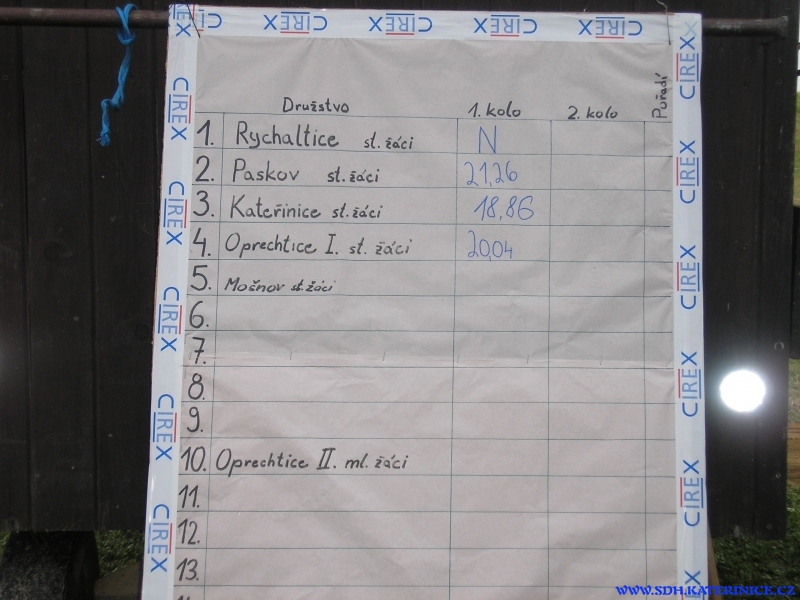 CIREX CIREX CIREX CIREX CIREX
Družstvo 1. kolo 2. kolo Pořadí
1. Rychaltice st. žáci N
2. Paskov st. žáci 21,26
3. Kateřinice st. žáci 18,86
4. Oprechtice I. st. žáci 20,04
5. Mošnov st. žáci
6.
7.
8.
9.
10. Oprechtice II. ml. žáci
11.
12.
13.
CIREX
CIREX
CIREX
CIREX
CIREX
CIREX
CIREX
CIREX
CIREX
CIREX
WWW.SDH.KATERINICE.CZ